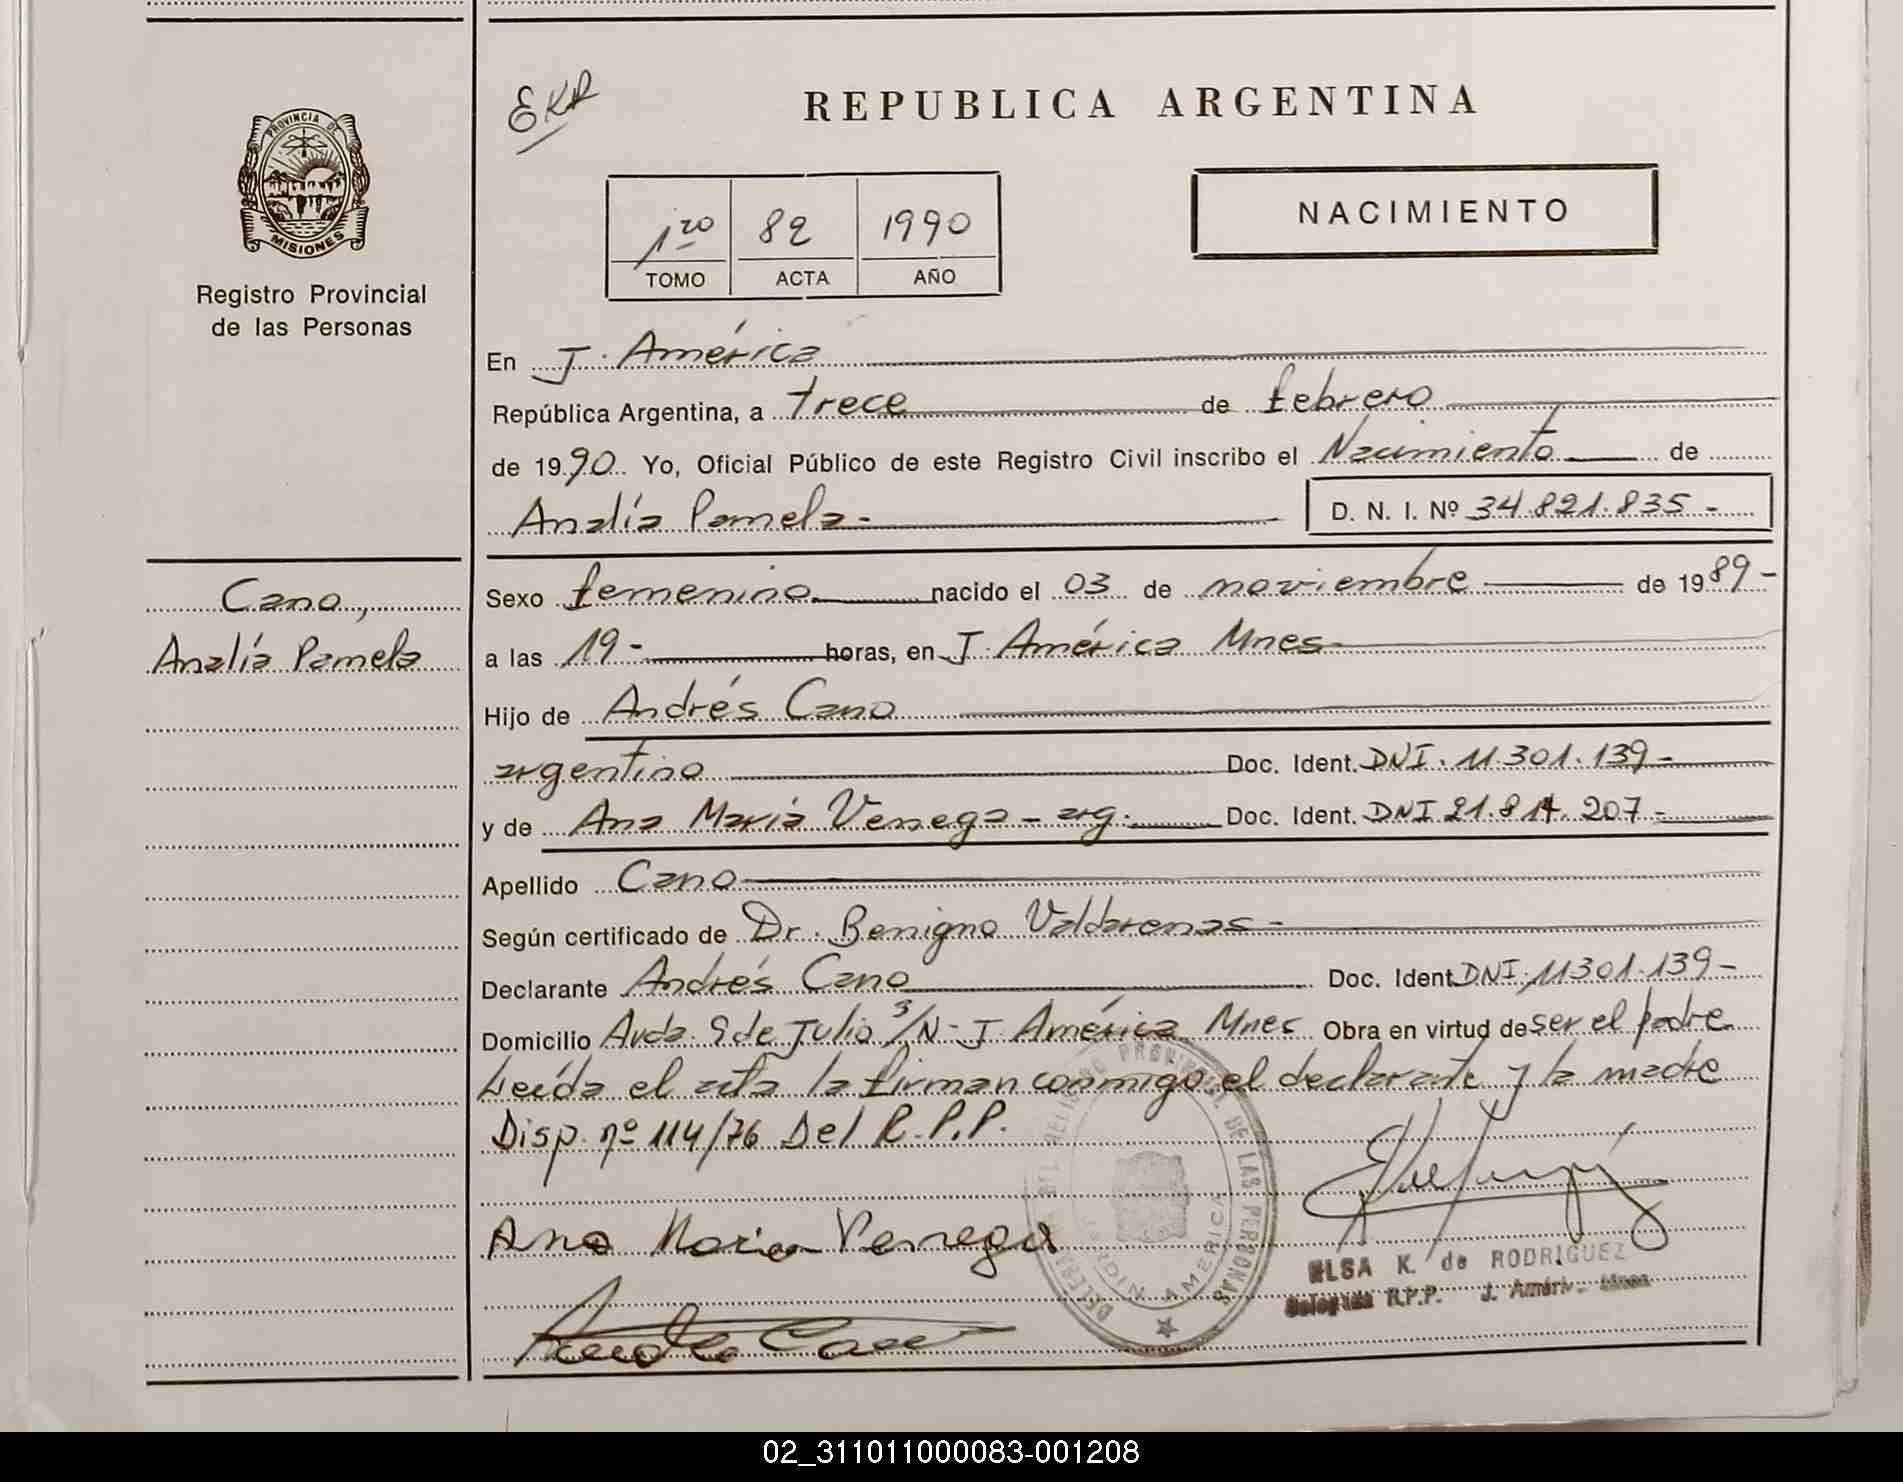 EKR
REPUBLICA ARGENTINA
PROVINCIA DE
MISIONES
Registro Provincial
de las Personas
1ro 82 1990
TOMO ACTA AÑO
NACIMIENTO
En J. América
República Argentina, a trece de febrero
de 1990 Yo, Oficial Público de este Registro Civil inscribo el Nacimiento de
Analía Pamela.- D. N. I. Nº 34.821.835 -
Cano,
Analía Pamela
Sexo femenino nacido el 03 de noviembre de 1989-
a las 19- horas, en J. América Mnes
Hijo de Andrés Cano
argentino Doc. Ident. DNI. 11.301.139-
y de Ana María Venega - arg. Doc. Ident. DNI 21.814.207-
Apellido Cano
Según certificado de Dr. Benigno Valdarenas-
Declarante Andrés Cano Doc. Ident. DNI. 11301.139-
Domicilio Avda. 9 de Julio S/N- J. América Mnes Obra en virtud de ser el padre
Leída el acta la firman conmigo el declarante y la madre
Disp. nº 114/76 Del R.P.P.
Ana Maria Venega
PROVINCIAL DE LAS PERSONAS
JARDIN AMERICA
ELSA K. de RODRIGUEZ
Delegada R.P.P. J. Améric. Mnes
02_311011000083-001208